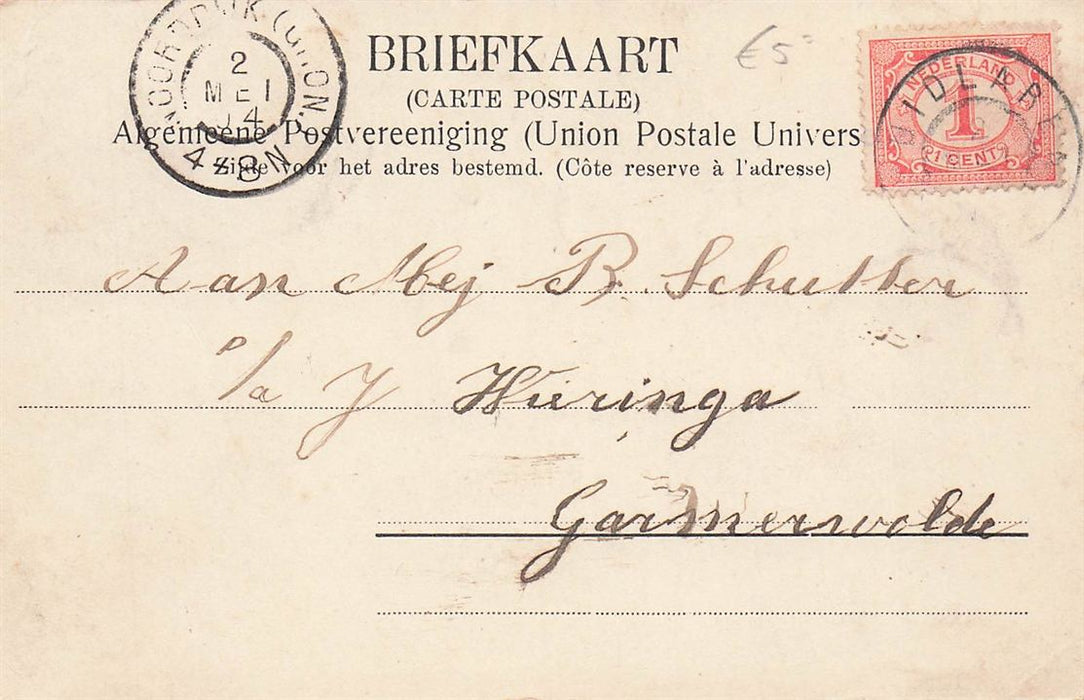 BRIEFKAART
€5=
(CARTE POSTALE)
Algemeene Postvereeniging (Union Postale Univers
Zijde voor het adres bestemd. (Côte reserve à l'adresse)
NOORDDIJK. (GRON.
2
MEI
04
4-8N
NEDERLAND
1
1 CENT
Aan Mej B. Schutter
p/a J Wieringa
Garmerwolde